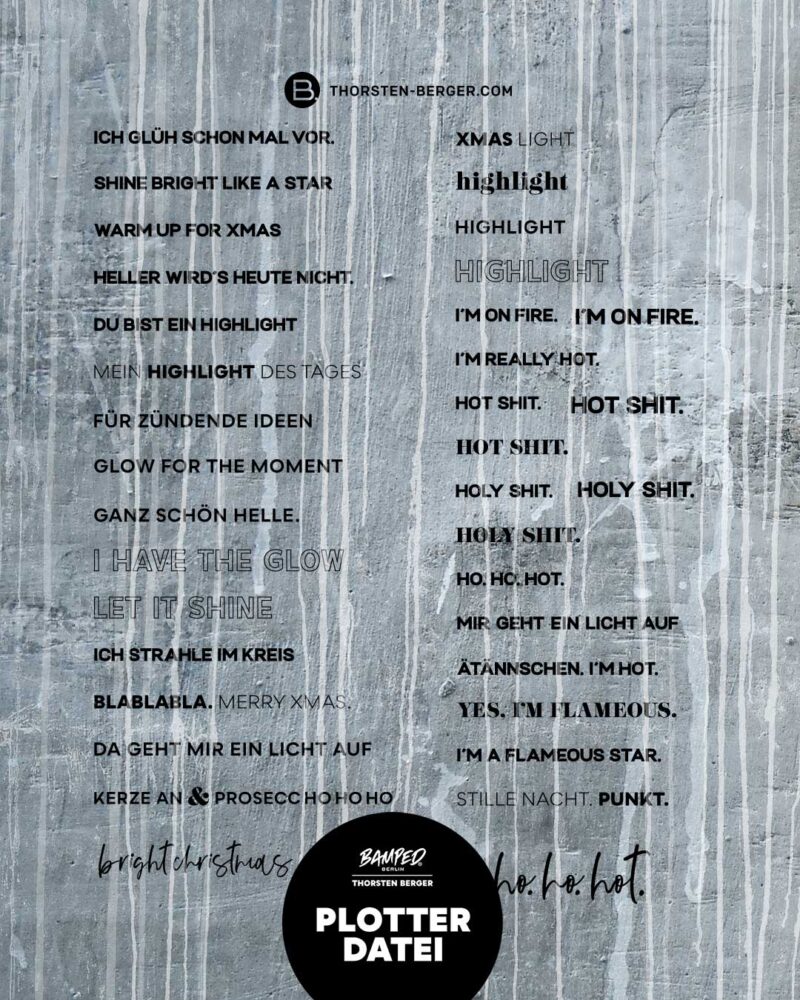 B. THORSTEN-BERGER.COM
ICH GLÜH SCHON MAL VOR.
SHINE BRIGHT LIKE A STAR
WARM UP FOR XMAS
HELLER WIRD'S HEUTE NICHT.
DU BIST EIN HIGHLIGHT
MEIN HIGHLIGHT DES TAGES
FÜR ZÜNDENDE IDEEN
GLOW FOR THE MOMENT
GANZ SCHÖN HELLE.
I HAVE THE GLOW
LET IT SHINE
ICH STRAHLE IM KREIS
BLABLABLA. MERRY XMAS.
DA GEHT MIR EIN LICHT AUF
KERZE AN & PROSECC HO HO HO
bright christmas
XMAS LIGHT
highlight
HIGHLIGHT
HIGHLIGHT
I'M ON FIRE. I'M ON FIRE.
I'M REALLY HOT.
HOT SHIT. HOT SHIT.
HOT SHIT.
HOLY SHIT. HOLY SHIT.
HOLY SHIT.
HO. HO. HOT.
MIR GEHT EIN LICHT AUF
ÄTÄNNSCHEN. I'M HOT.
YES, I'M FLAMEOUS.
I'M A FLAMEOUS STAR.
STILLE NACHT. PUNKT.
ho. ho. hot.
BAMPED.
BERLIN
THORSTEN BERGER
PLOTTER
DATEI